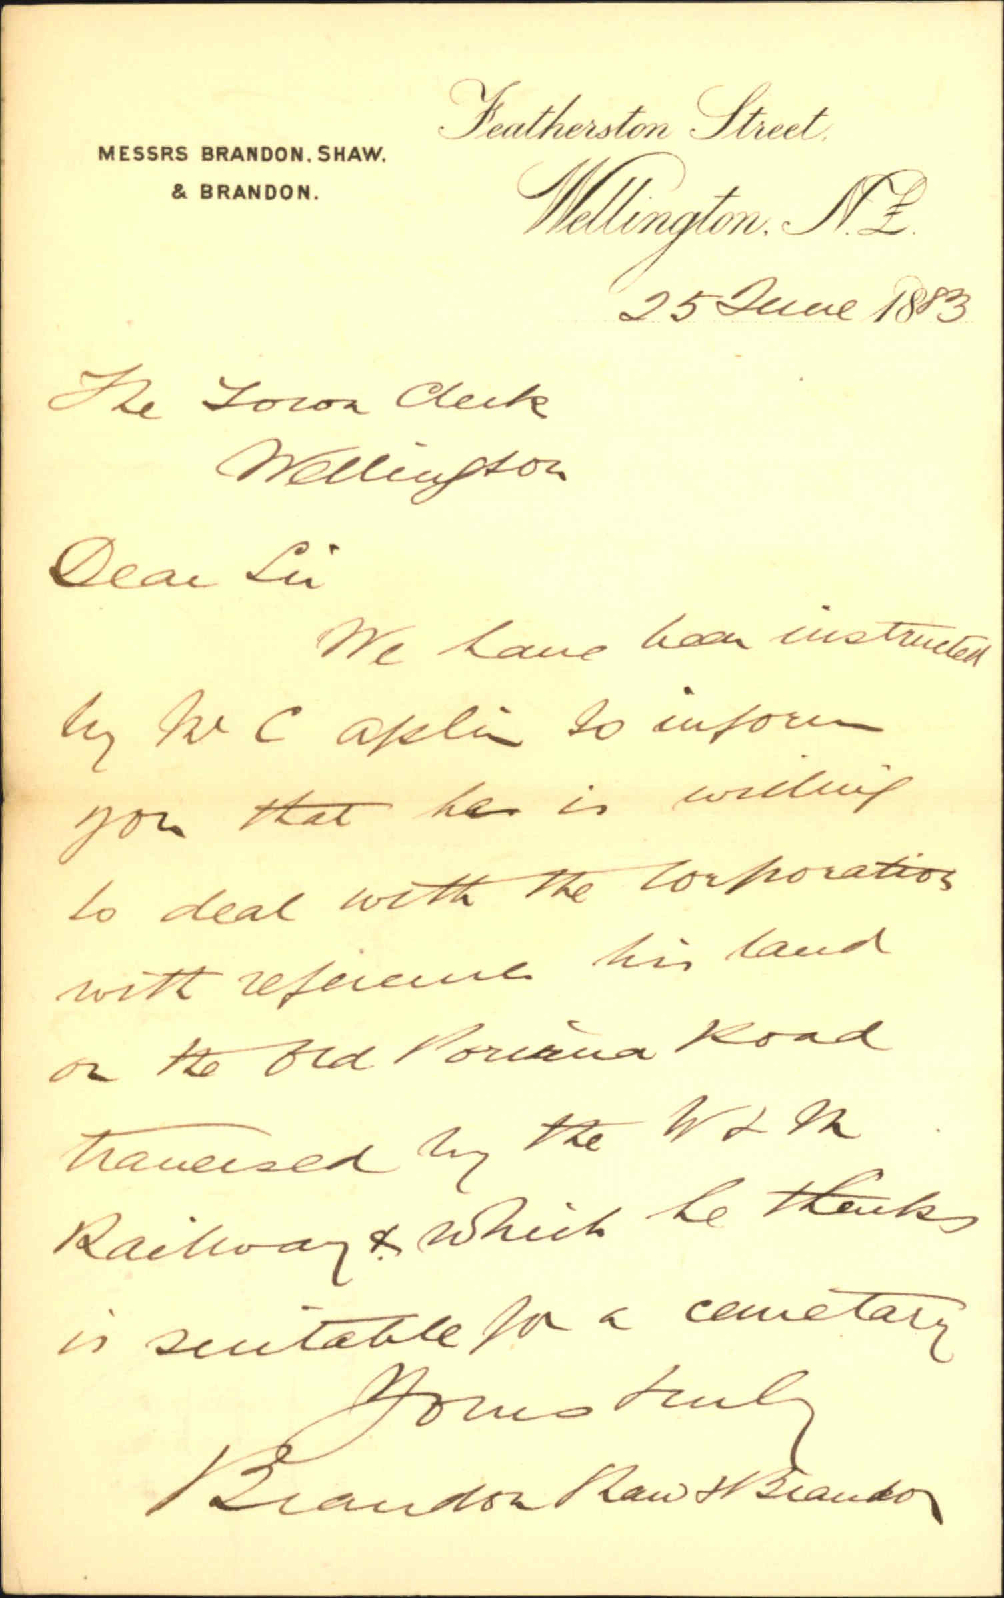 MESSRS BRANDON, SHAW,
& BRANDON.
Featherston Street,
Wellington, N.Z.
25 June 1883
The Town Clerk
Wellington
Dear Sir
We have been instructed
by Mr C Aplin to inform
you that he is willing
to deal with the Corporation
with reference his land
on the Old Porirua Road
traversed by the W & M
Railway & which he thinks
is suitable for a cemetary
Yours truly
Brandon Shaw & Brandon